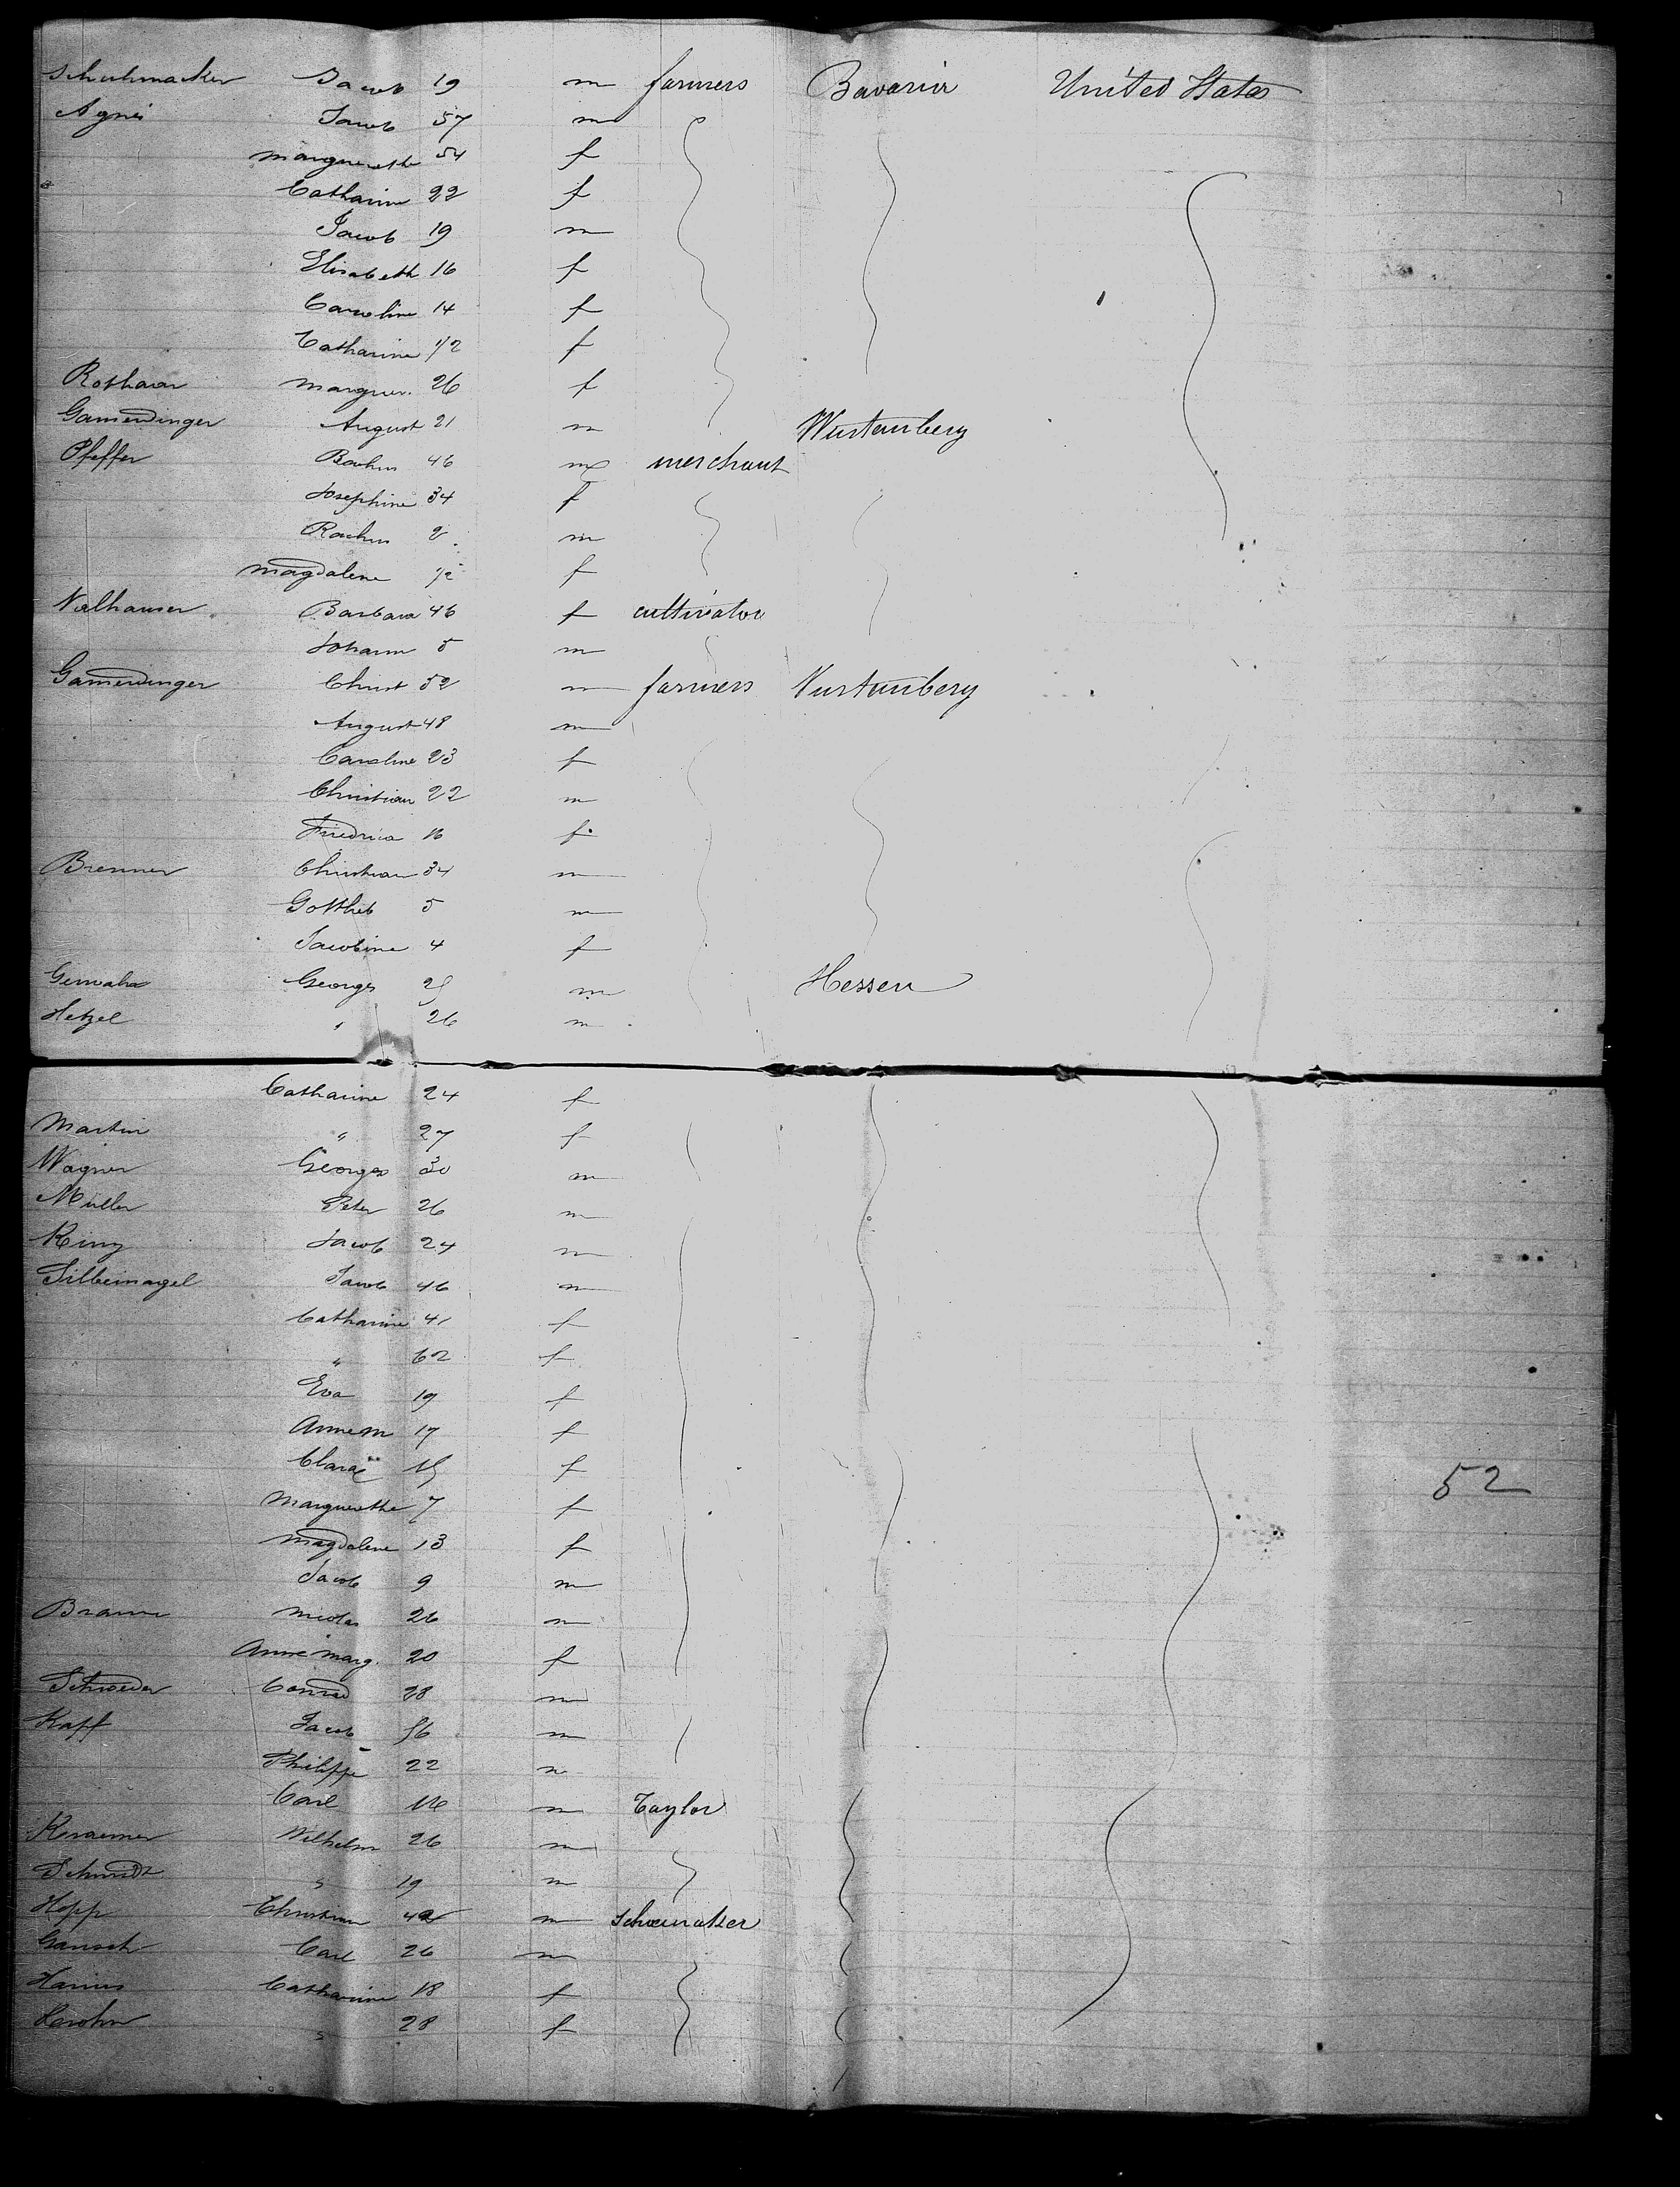 Schuhmacker Jacob 19 m farmers Bavaria United States
Agnes Jacob 57 m
Marguerethe 54 f
Catharine 22 f
Jacob 19 m
Elisabeth 16 f
Caroline 14 f
Catharine 1/2 f
Rothaar Marguer. 26 f
Gamerdinger August 21 m Wurtemberg
Pfeffer 46 m merchant
Josephine 34 f
2 m
Magdalene 1/2 f
Barbara 46 f cultivator
Johann 5 m
Gamerdinger Christ 52 m farmers Wurtemberg
August 48 m
Caroline 23 f
Christian 22 m
Friedrica 16 f
Brenner Christian 34 m
Gottlieb 5 m
Jacobine 4 f
Georges 25 m Hessen
Hetzel " 26 m
Catharine 24 f
Martin " 27 f
Wagner Georges 30 m
Muller Peter 26 m
Jacob 24 m
Silbernagel Jacob 46 m
Catharine 41 f
" 62 f
Eva 19 f
Anne M 17 f
Clara 15 f
Marguerethe 7 f
Magdalene 13 f
Jacob 9 m
52
Braun Nicolas 26 m
Anne Marg. 20 f
Schroeder Conrad 28 m
Kaff Jacob 56 m
Philippe 22 m
Carl 16 m Taylor
Kraemer Wilhelm 26 m
Schmidt " 19 m
Hopp Christian 42 m Schoemaker
Carl 26 m
Catharine 18 f
" 28 f